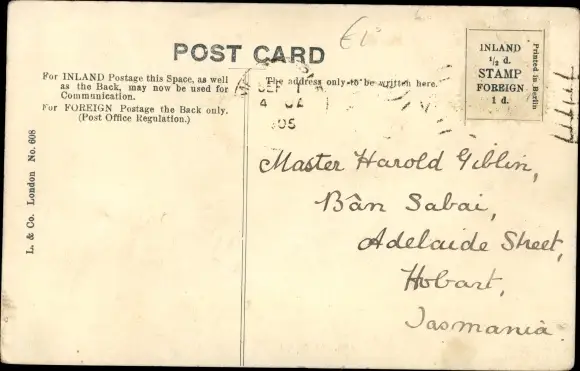 £1
POST CARD
For INLAND Postage this Space, as well
as the Back, may now be used for
Communication.
For FOREIGN Postage the Back only.
(Post Office Regulation.)
The address only to be written here.
SEP 1
4
05
INLAND
½ d.
STAMP
FOREIGN
1 d.
Printed in Berlin
L. & Co. London No. 608
Master Harold Giblin,
Bân Sabai,
Adelaide Street,
Hobart,
Tasmania.